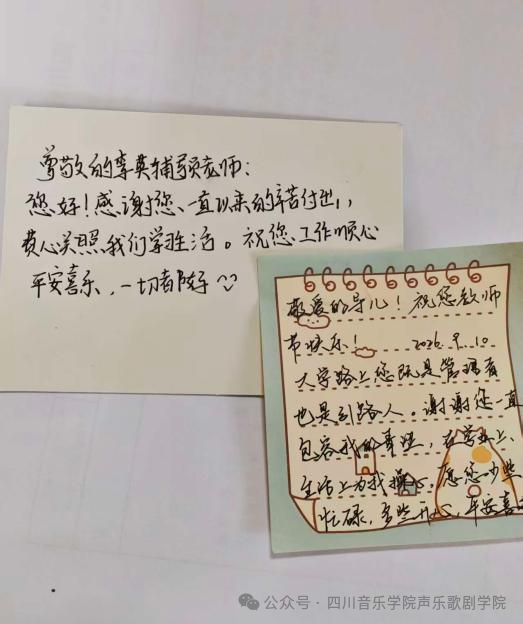 尊敬的李英辅导员老师：
您好！感谢您、一直以来的辛苦付出，
费心关照我们学生生活。祝您工作顺心
平安喜乐，一切都好
敬爱的导儿！祝您教师
节快乐！ 2026.9.10
大学路上您既是管理者
也是引路人。谢谢您一直
包容我的，在学业上、
生活上为我操心。愿您少些
忙碌，多些开心，平安喜
公众号·四川音乐学院声乐歌剧学院